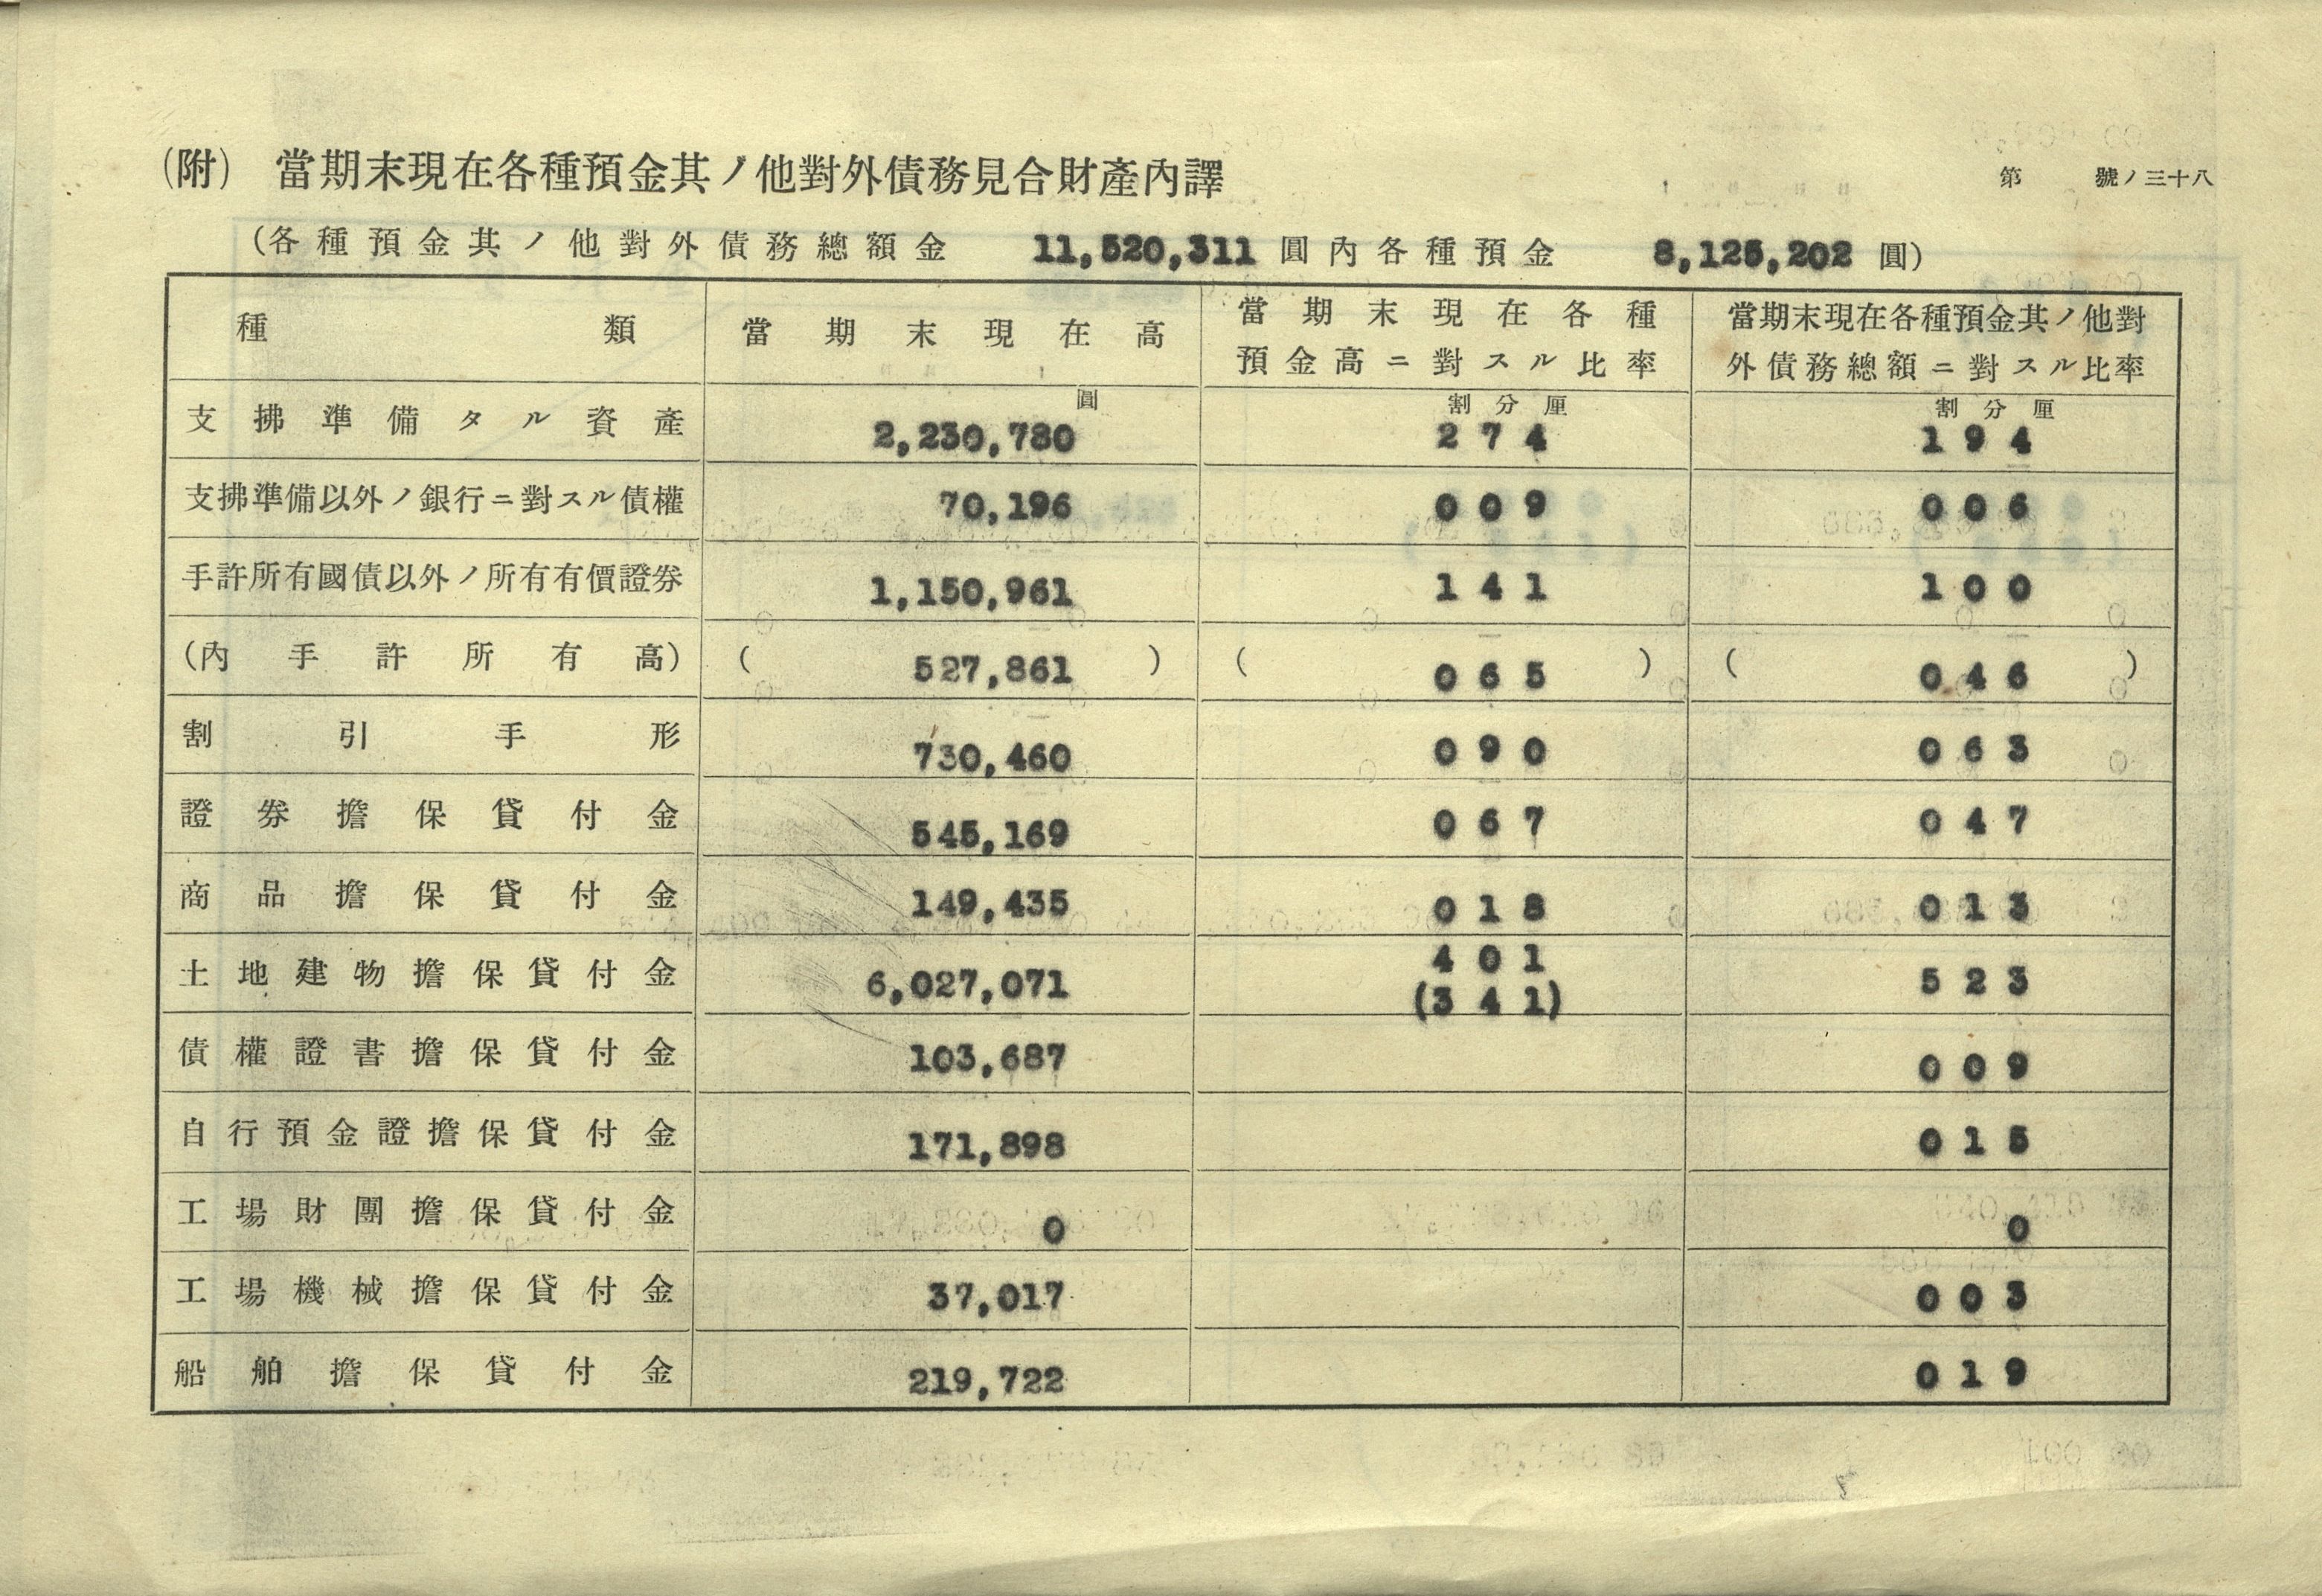 (附) 當期末現在各種預金其ノ他對外債務見合財產內譯
第 號ノ三十八
(各種預金其ノ他對外債務總額金 11,520,311 圓內各種預金 8,125,202 圓)
種類 當期末現在高 當期末現在各種預金高ニ對スル比率 當期末現在各種預金其ノ他對外債務總額ニ對スル比率
圓 割分厘 割分厘
支拂準備タル資產 2,230,780 274 194
支拂準備以外ノ銀行ニ對スル債權 70,196 009 006
手許所有國債以外ノ所有有價證券 1,150,961 141 100
(內手許所有高) ( 527,861 ) ( 065 ) ( 046 )
割引手形 730,460 090 063
證券擔保貸付金 545,169 067 047
商品擔保貸付金 149,435 018 013
土地建物擔保貸付金 6,027,071 401 (341) 523
債權證書擔保貸付金 103,687 009
自行預金證擔保貸付金 171,898 015
工場財團擔保貸付金 0 0
工場機械擔保貸付金 37,017 003
船舶擔保貸付金 219,722 019